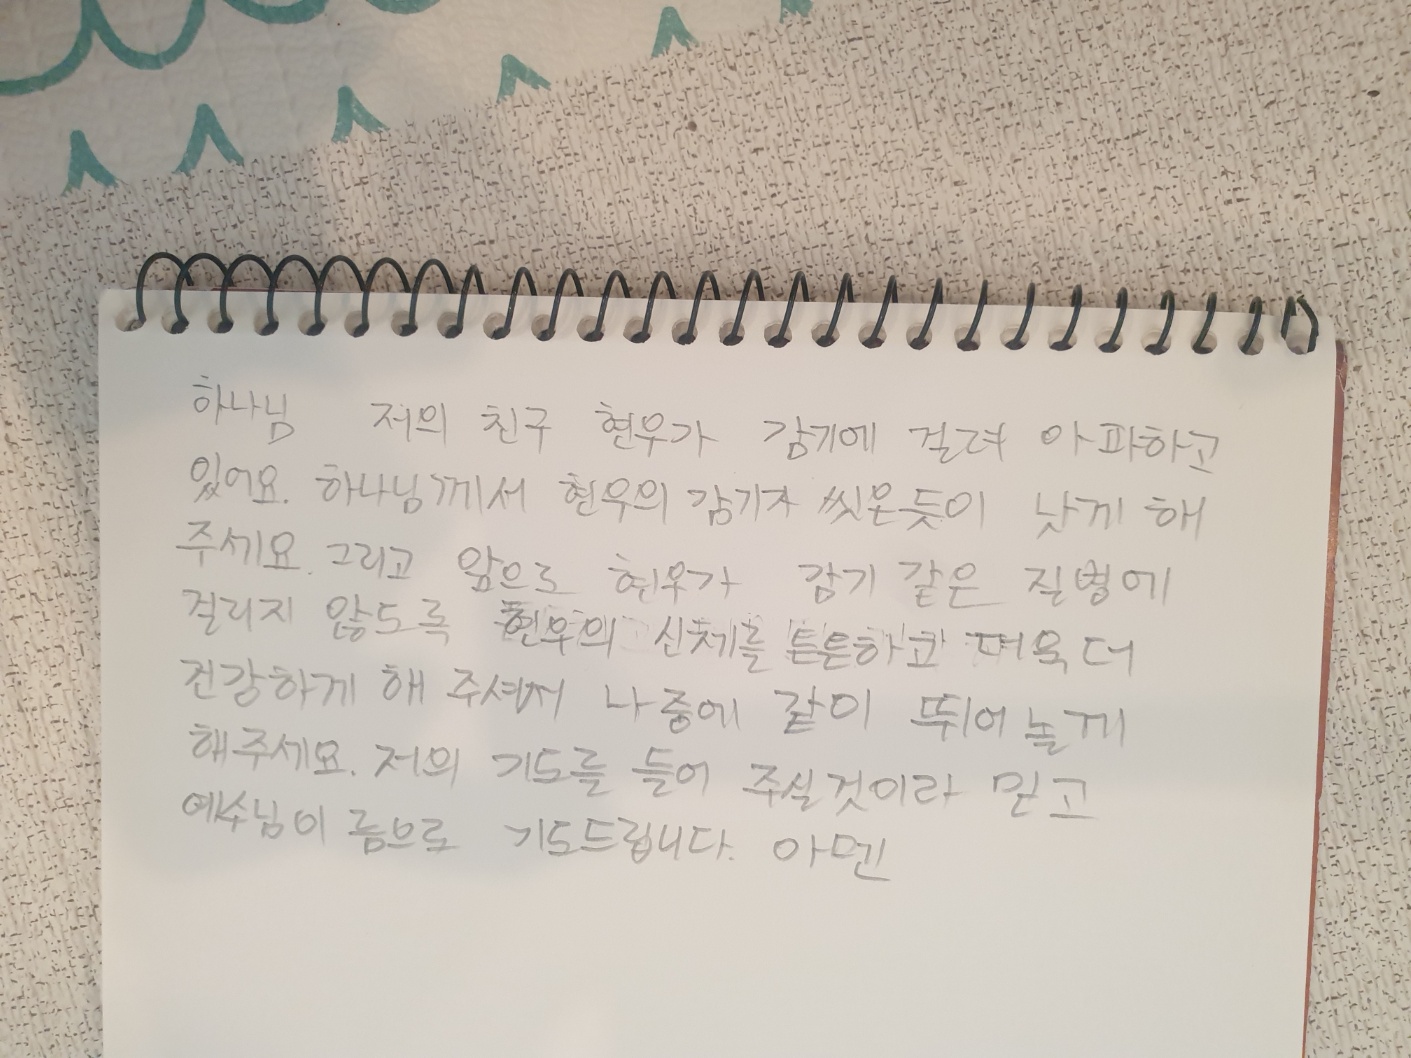 하나님 저의 친구 현우가 감기에 걸려 아파하고
있어요. 하나님께서 현우의 감기가 씻은듯이 낫게 해
주세요. 그리고 앞으로 현우가 감기 같은 질병에
걸리지 않도록 현우의 신체를 튼튼하고 더욱 더
건강하게 해 주셔서 나중에 같이 뛰어 놀게
해주세요. 저의 기도를 들어 주실것이라 믿고
예수님이 름으로 기도드립니다. 아멘